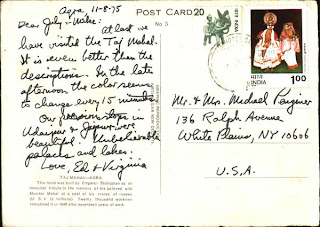 Agra, 11-8-75
POST CARD 20
No 3
Dear Judy - Mike:
At last we
have visited the Taj Mahal.
It is even better than the
descriptions. In the late
afternoon the color seems
to change every 15 minutes
Our stops in
Udaipur & Jaipur were
beautiful. Unbelievable
palaces and lakes.
Love, Ed & Virginia
TAJ MAHAL—AGRA
This tomb was built by Emperor Shahjahan as an
immortal tribute to the memory of his beloved wife
Mumtaz Mahal at a cost of six crores of rupees
Twenty thousand workmen
completed it in 1648 after seventeen years of work.
भारत INDIA
1.00
Mr. & Mrs. Michael
136 Ralph Avenue
White Plains, NY 10606
U.S.A.